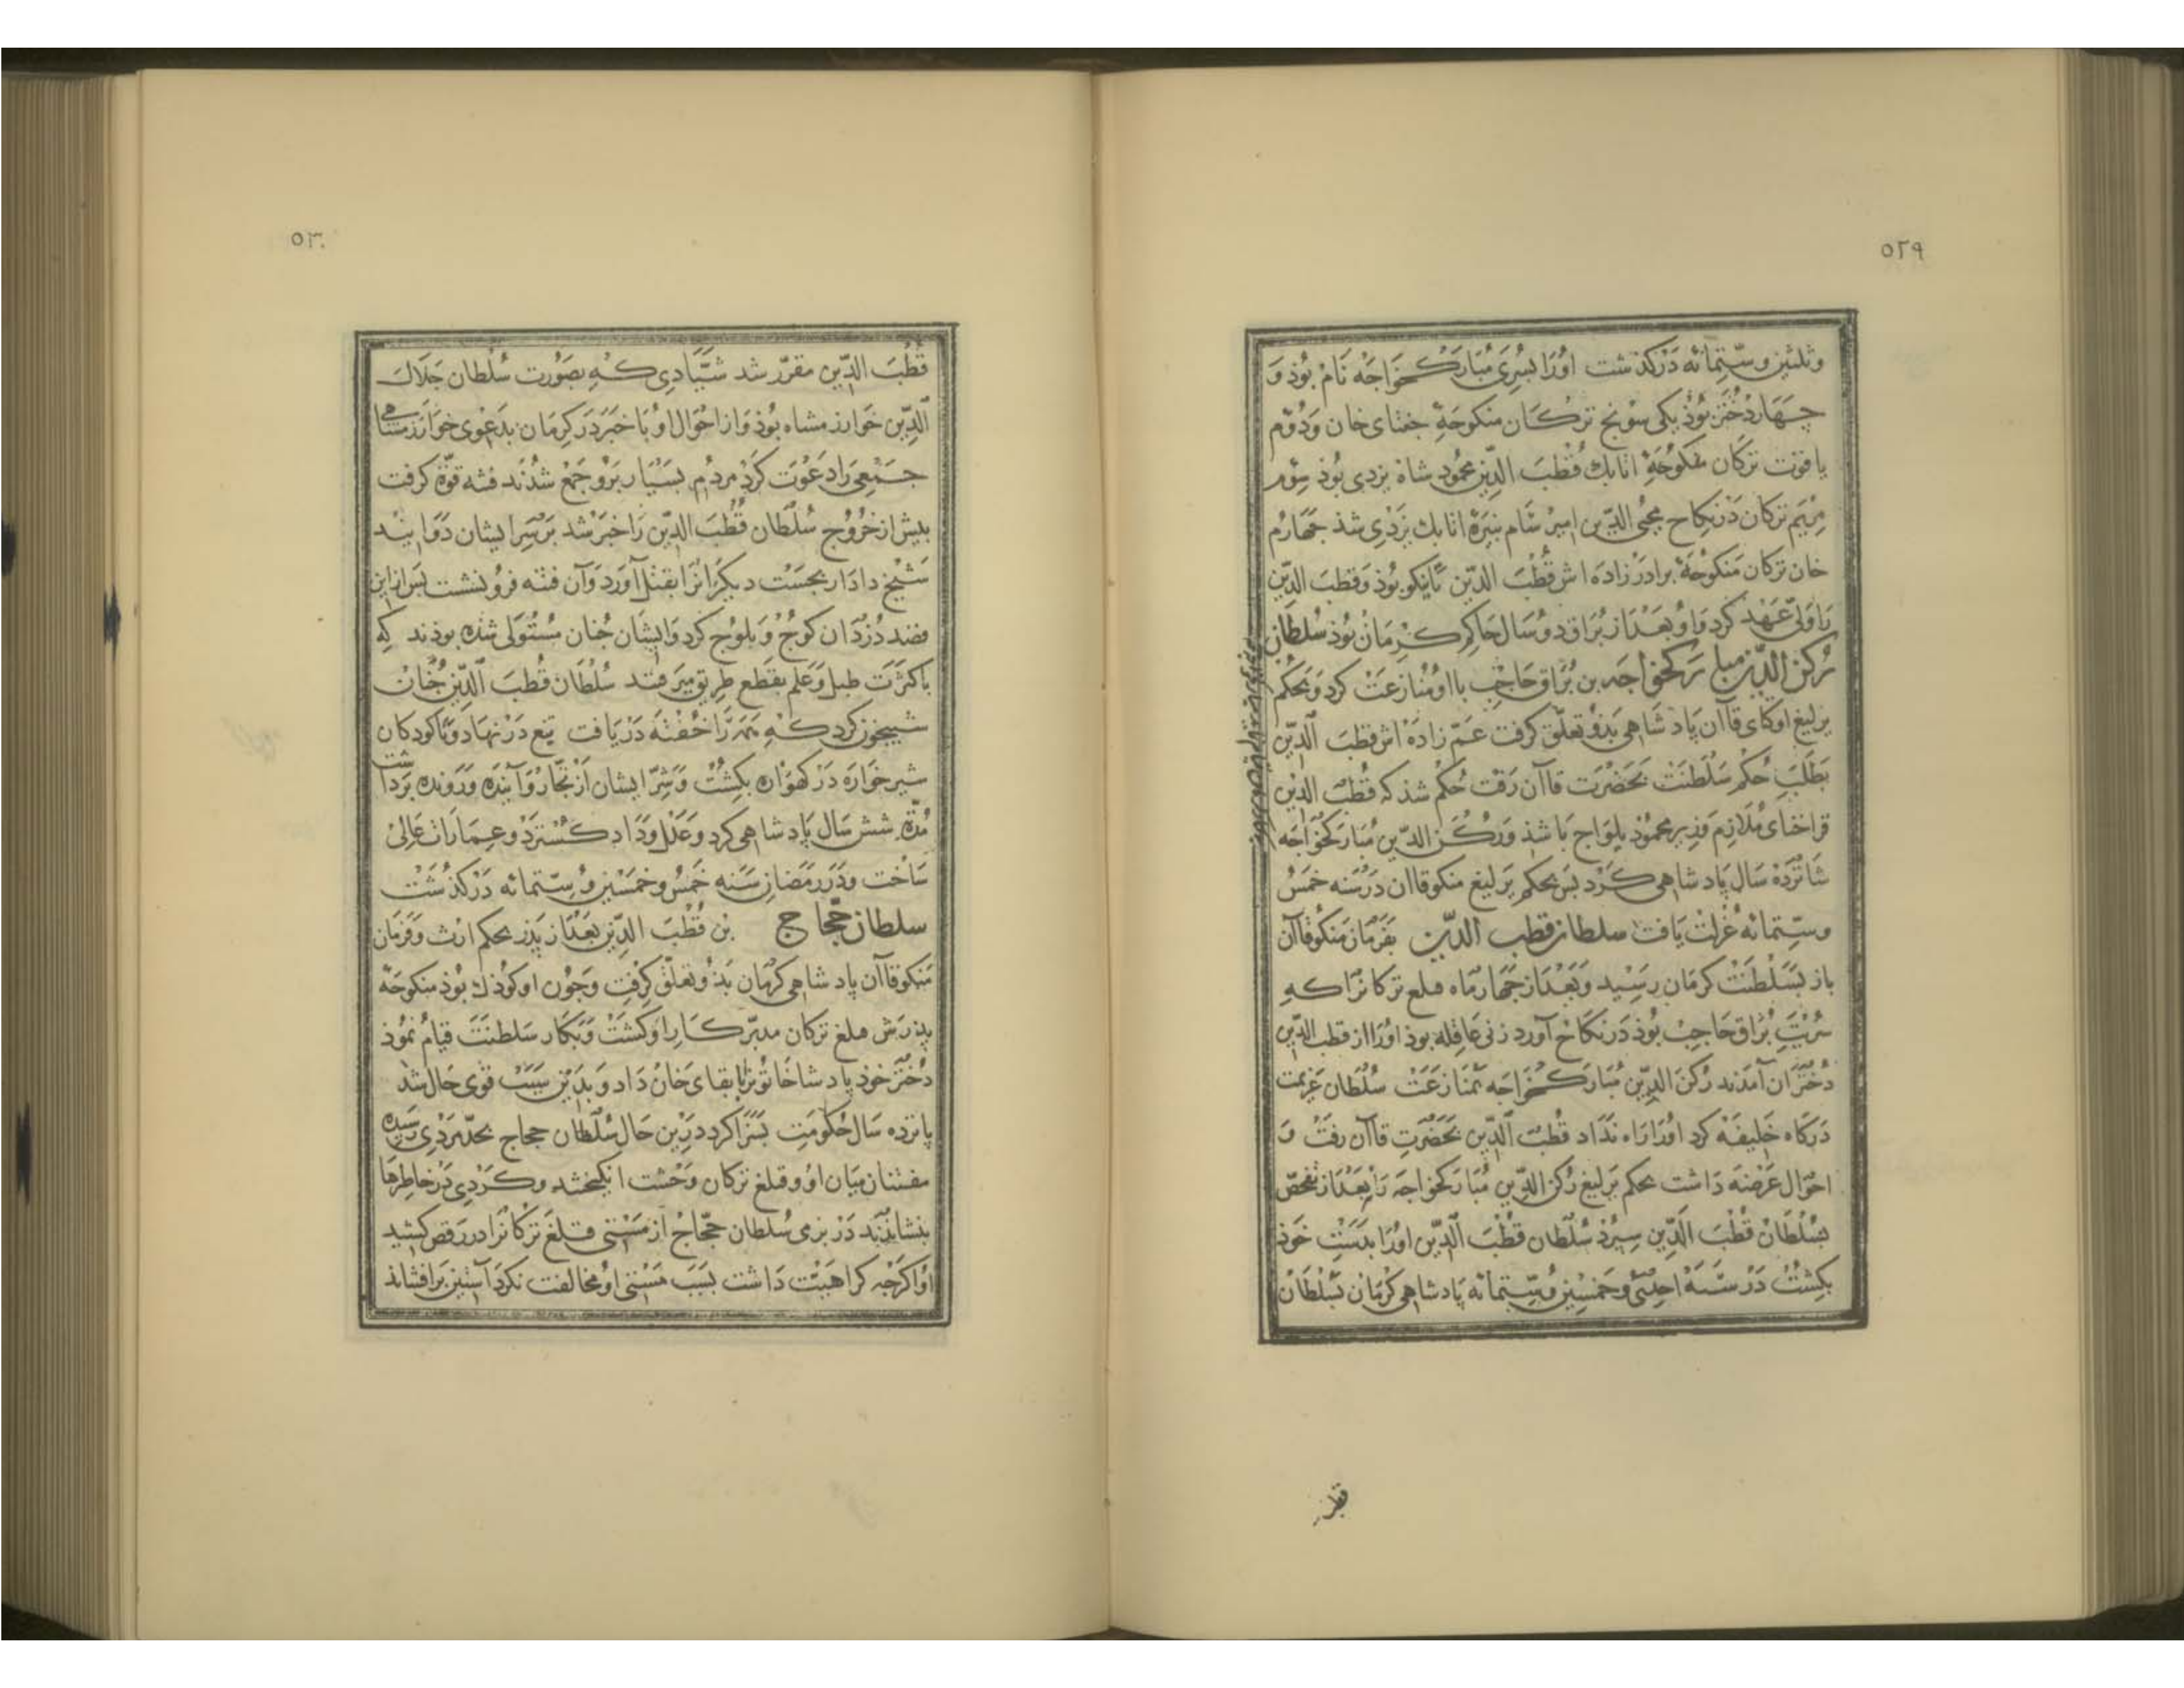 ٥٢٩
وثلثین وستمائه درکذشت اورا بسری مبارک خواجه نام بوذ و
چهار دختر بوذ یکی سونج ترکان منکوحهٔ جغتای خان و دوم
یاقوت ترکان منکوحهٔ اتابک قطب الدین محمود شاه یزدی بوذ سوم
مریم ترکان در نکاح محیی الدین امیر شام نبیرهٔ اتابک یزدی شذ جهارم
خان ترکان منکوحهٔ برادرزاده اش قطب الدین تاینکو بوذ و قطب الدین
را ولی عهد کرد و او بعد از براق دو سال حاکم کرمان بوذ سلطان
رکن الدین مبارکخواجه بن براق حاجب با او منازعت کرد و بحکم
یرلیغ اوکتای قاآن پادشاهی بذو تعلق کرفت عم زاده اش قطب الدین
بطلب حکم سلطنت بحضرت قاآن رفت حکم شذ که قطب الدین
قراختای ملازم وزیر محموذ یلواج باشذ و رکن الدین مبارکخواجه
شانزده سال پادشاهی کرد بس بحکم یرلیغ منکوقاآن در سنه خمس
وستمائه عزلت یافت سلطان قطب الدین بفرمان منکوقاآن
باز بسلطنت کرمان رسید و بعد از جهار ماه قتلغ ترکانرا که
سریت براق حاجب بوذ در نکاح آورد زنی عاقله بوذ اورا از قطب الدین
دختران آمدند رکن الدین مبارک خواجه بمنازعت سلطان عزیمت
درکاه خلیفه کرد اورا راه نداد قطب الدین بحضرت قاآن رفت و
احوال عرضه داشت بحکم یرلیغ رکن الدین مبارکخواجه را بعد از تفحص
بسلطان قطب الدین سپرد سلطان قطب الدین اورا بدست خوذ
بکشت در سنه احدی وخمسین وستمائه پادشاهی کرمان بسلطان
قطب
٥٣٠
قطب الدین مقرر شد شیادی که بصورت سلطان جلال
الدین خوارزمشاه بوذ و از احوال او باخبر در کرمان بدعوی خوارزمشاهی
جمعی را دعوت کرد مردم بسیار برو جمع شدند فتنه قوة کرفت
بیش از خروج سلطان قطب الدین را خبر شد بر سر ایشان دوانیند
شیخ دادار بجست دیکرانرا بقتل آورد و آن فتنه فرونشست بس ازین
قصد دزدان کوج و بلوج کرد و ایشان جنان مستولی شده بوذند که
باکثرت طبل و علم بقطع طریق میرفتند سلطان قطب الدین جنان
شبیخون کرد که همه را خفته دریافت تیغ در نهاد و تا کودکان
شیر خواره در کهواره بکشت و شر ایشان از تجار و آینده و رونده برداشت
مدة شش سال پادشاهی کرد و عدل و داد کسترد و عمارات عالی
ساخت و در رمضان سنه خمس وخمسین وستمائه درکذشت
سلطان حجاج بن قطب الدین بعد از پذر بحکم ارث و فرمان
منکوقاآن پادشاهی کرمان بذو تعلق کرفت و جون او کوذک بوذ منکوحهٔ
پذرش قتلغ ترکان مدبر کار او کشت و بکار سلطنت قیام نموذ
دختر خوذ پادشاخاتونرا بابقای خان داد و بدین سبب قوی حال شد
پانزده سال حکومت بسزا کرد درین حال سلطان حجاج بحد مردی رسیده
مفتنان میان او و قتلغ ترکان وحشت انکیختند و کردی در خاطرها
بنشاندند در بزمی سلطان حجاج از مستی قتلغ ترکانرا در رقص کشید
او اکرجه کراهیت داشت بسبب مستی او مخالفت نکرد آستین برافشاند